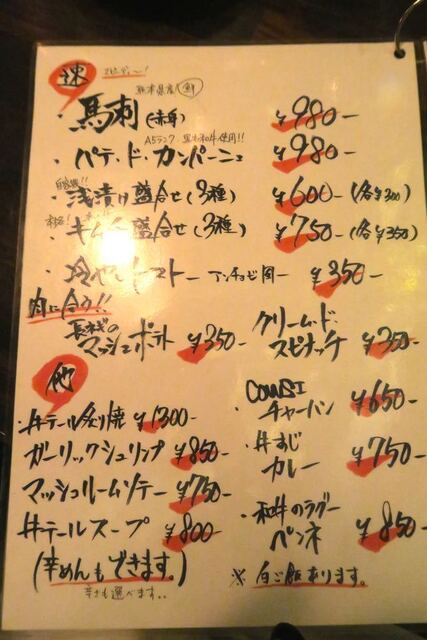 速 スピーディー!
熊本県産 鮮
・馬刺(赤身) ¥980-
A5ランク 黒毛和牛使用!!
・パテ・ド・カンパーニュ ¥980-
自家製!!
・浅漬け盛合せ(3種) ¥600-(各¥300)
・キムチ盛合せ(3種) ¥750-(各¥350)
・冷やしトマト ¥350-
肉に合う!!
長ネギのマッシュポテト ¥350-
クリームド・スピナッチ ¥350-
他
・牛テール炙り焼 ¥1300-
ガーリックシュリンプ ¥850-
マッシュルームソテー ¥750-
牛テールスープ ¥800-
(辛めんもできます。)
辛さも選べます..
・COWSIチャーハン ¥650-
・牛すじカレー ¥750-
・和牛のラグーペンネ ¥850-
※白ご飯あります。